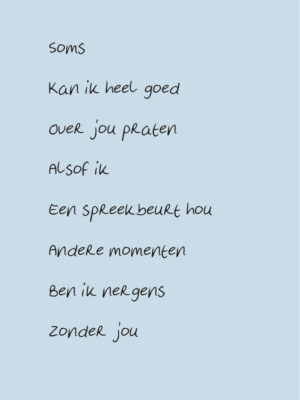 Soms
Kan ik heel goed
Over jou praten
Alsof ik
Een spreekbeurt hou
Andere momenten
Ben ik nergens
Zonder jou